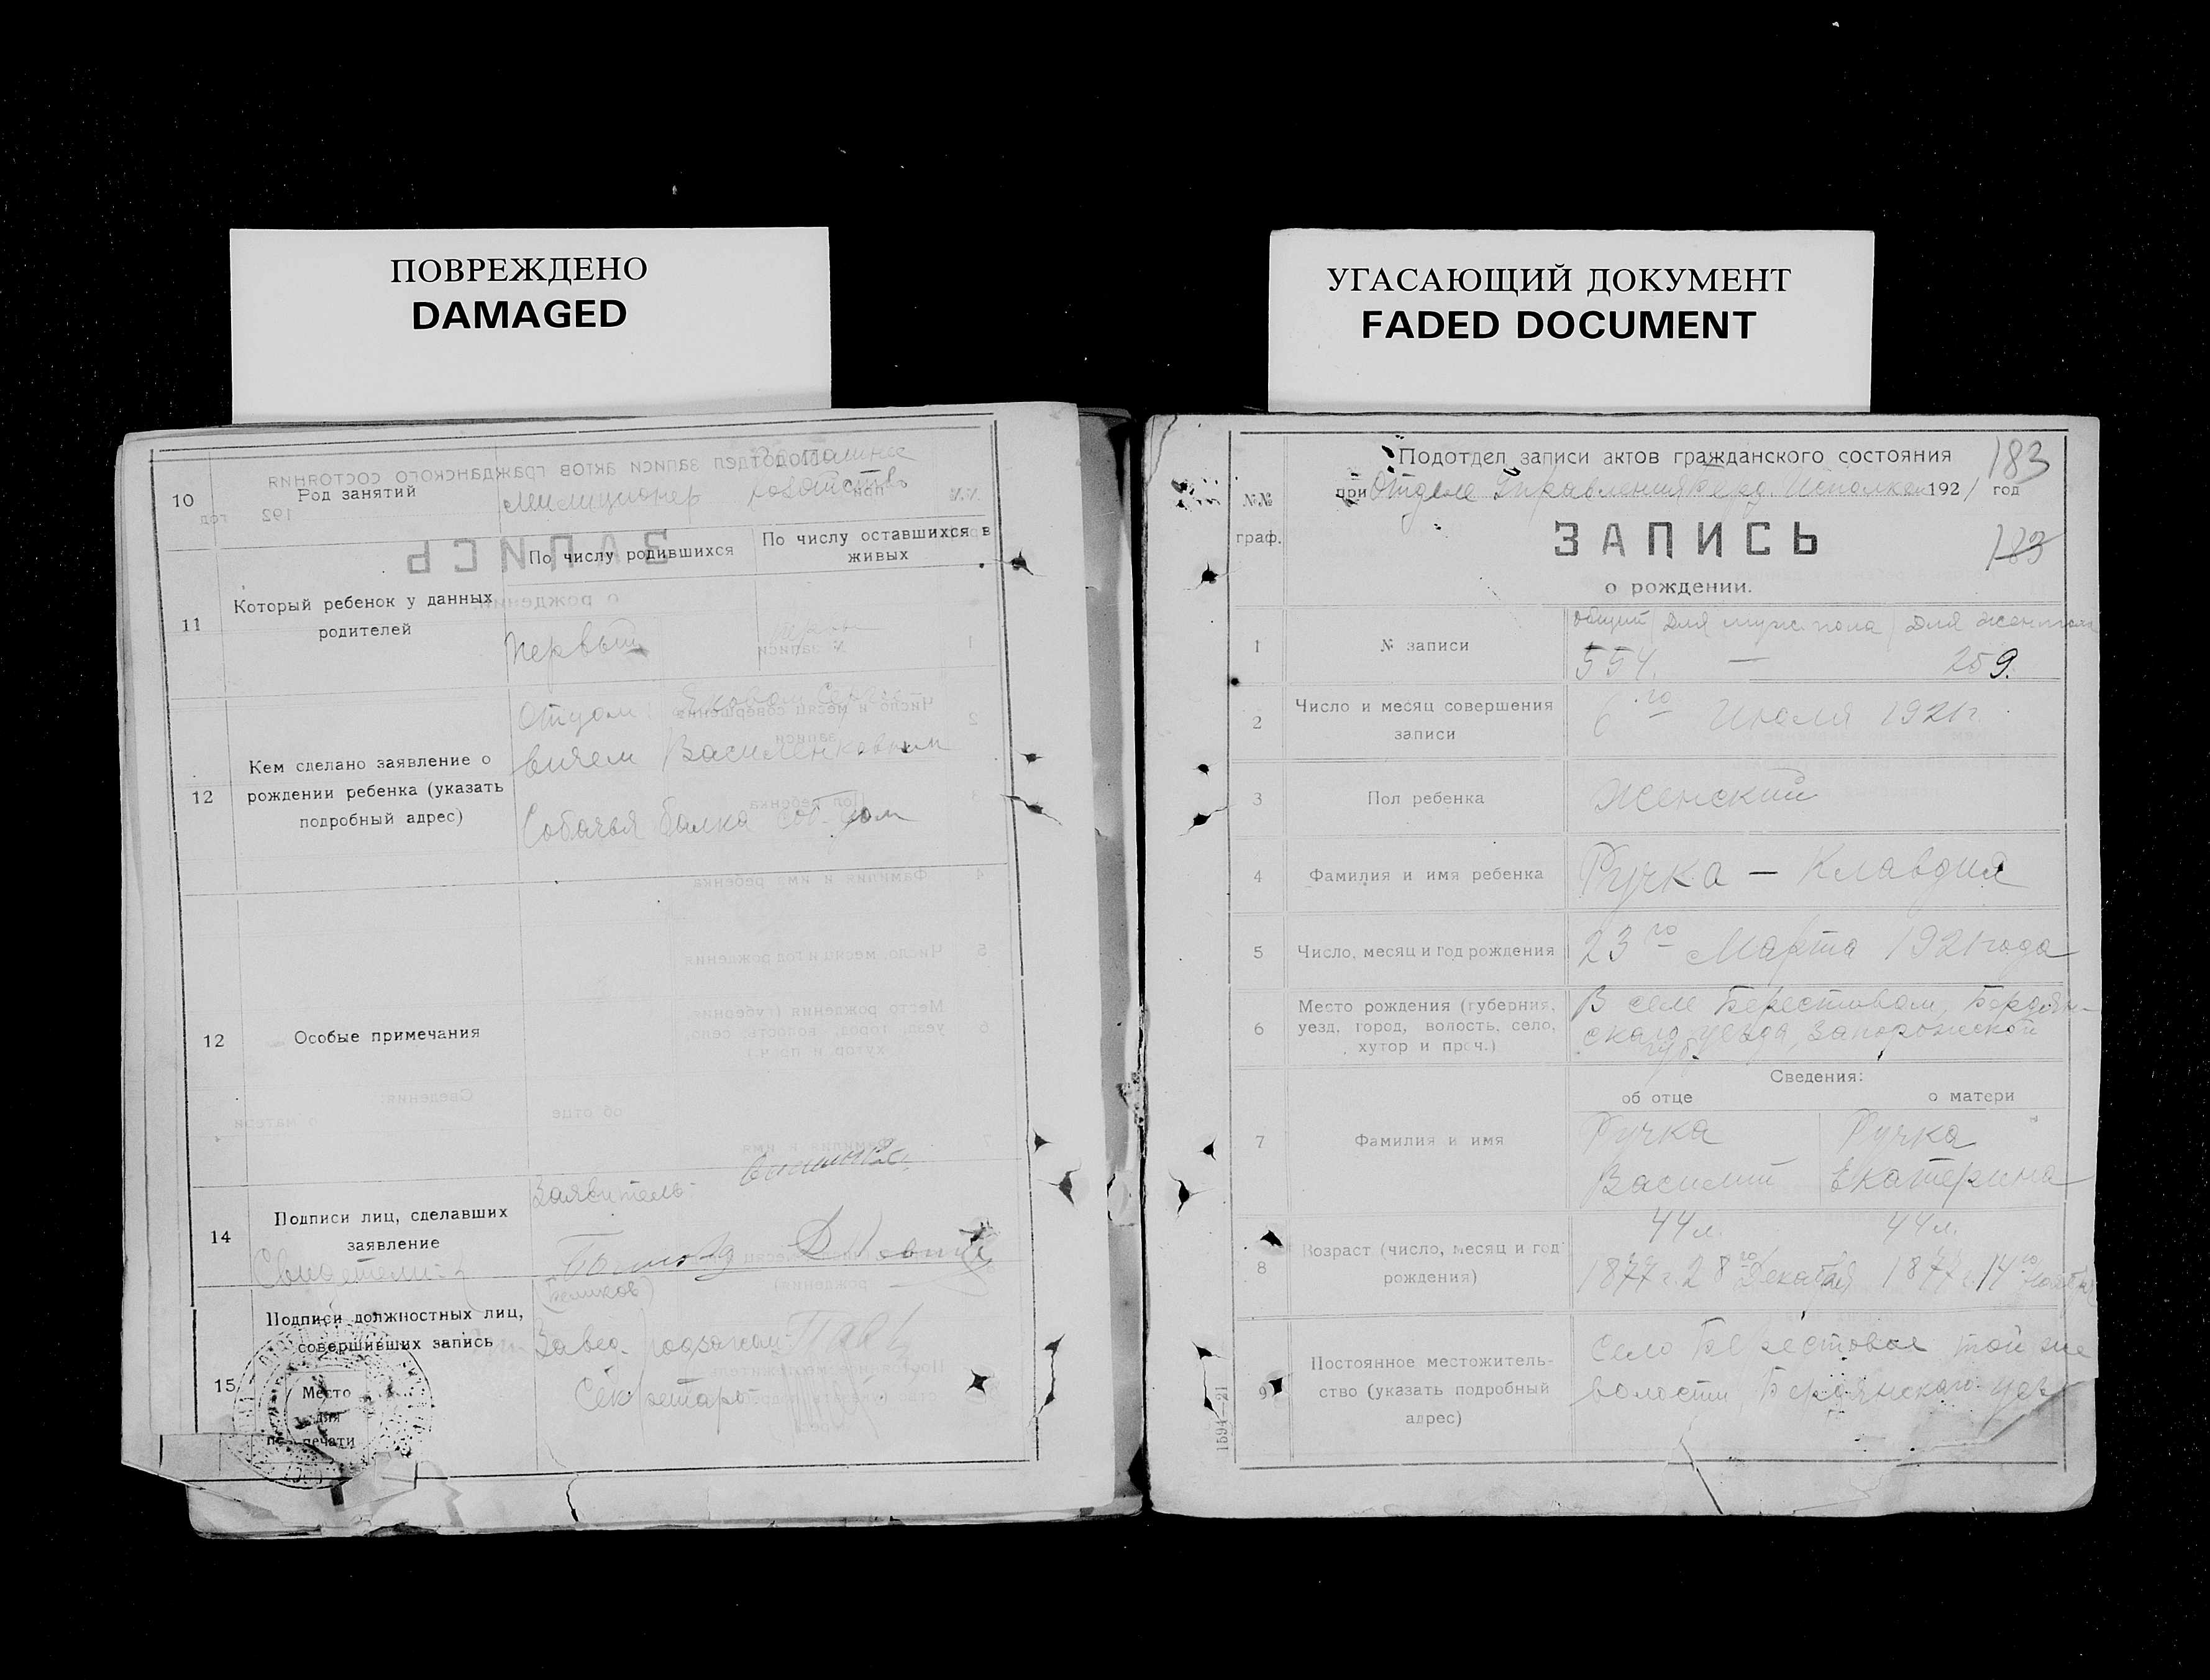 ПОВРЕЖДЕНО
DAMAGED
УГАСАЮЩИЙ ДОКУМЕНТ
FADED DOCUMENT
10
Род занятий
милиционер
По числу родившихся
По числу оставшихся в живых
11
Который ребенок у данных
родителей
Первый
12
Кем сделано заявление о
рождении ребенка (указать
подробный адрес)
Отцом
вичем Василенковым
Собачья балка соб. дом
12
Особые примечания
14
Подписи лиц, сделавших
заявление
Заявитель:
Свидетели:
15
Подписи должностных лиц,
совершивших запись
Завед.
Секретарь
Место
для
печати
183
Подотдел записи актов гражданского состояния
при Отделе Управления 1921 год
№№
граф.
ЗАПИСЬ
183
о рождении.
1
№ записи
общий для муж. пола для жен. пола
554. — 259.
2
Число и месяц совершения
записи
6го Июля 1921 г.
3
Пол ребенка
Женский
4
Фамилия и имя ребенка
Ручка — Клавдия
5
Число, месяц и год рождения
23го Марта 1921 года
6
Место рождения (губерния,
уезд, город, волость, село,
хутор и проч.)
В селе Берестовом, Бердян-
ского уезда, Запорожской
губ.
Сведения:
об отце
о матери
7
Фамилия и имя
Ручка
Василий
Ручка
Екатерина
8
Возраст (число, месяц и год
рождения)
44 л.
1877 г. 28го Декабря
44 л.
1877 г. 14го Ноября
9
Постоянное местожитель-
ство (указать подробный
адрес)
Село Берестовое той же
волости Бердянского уез.
1594—21